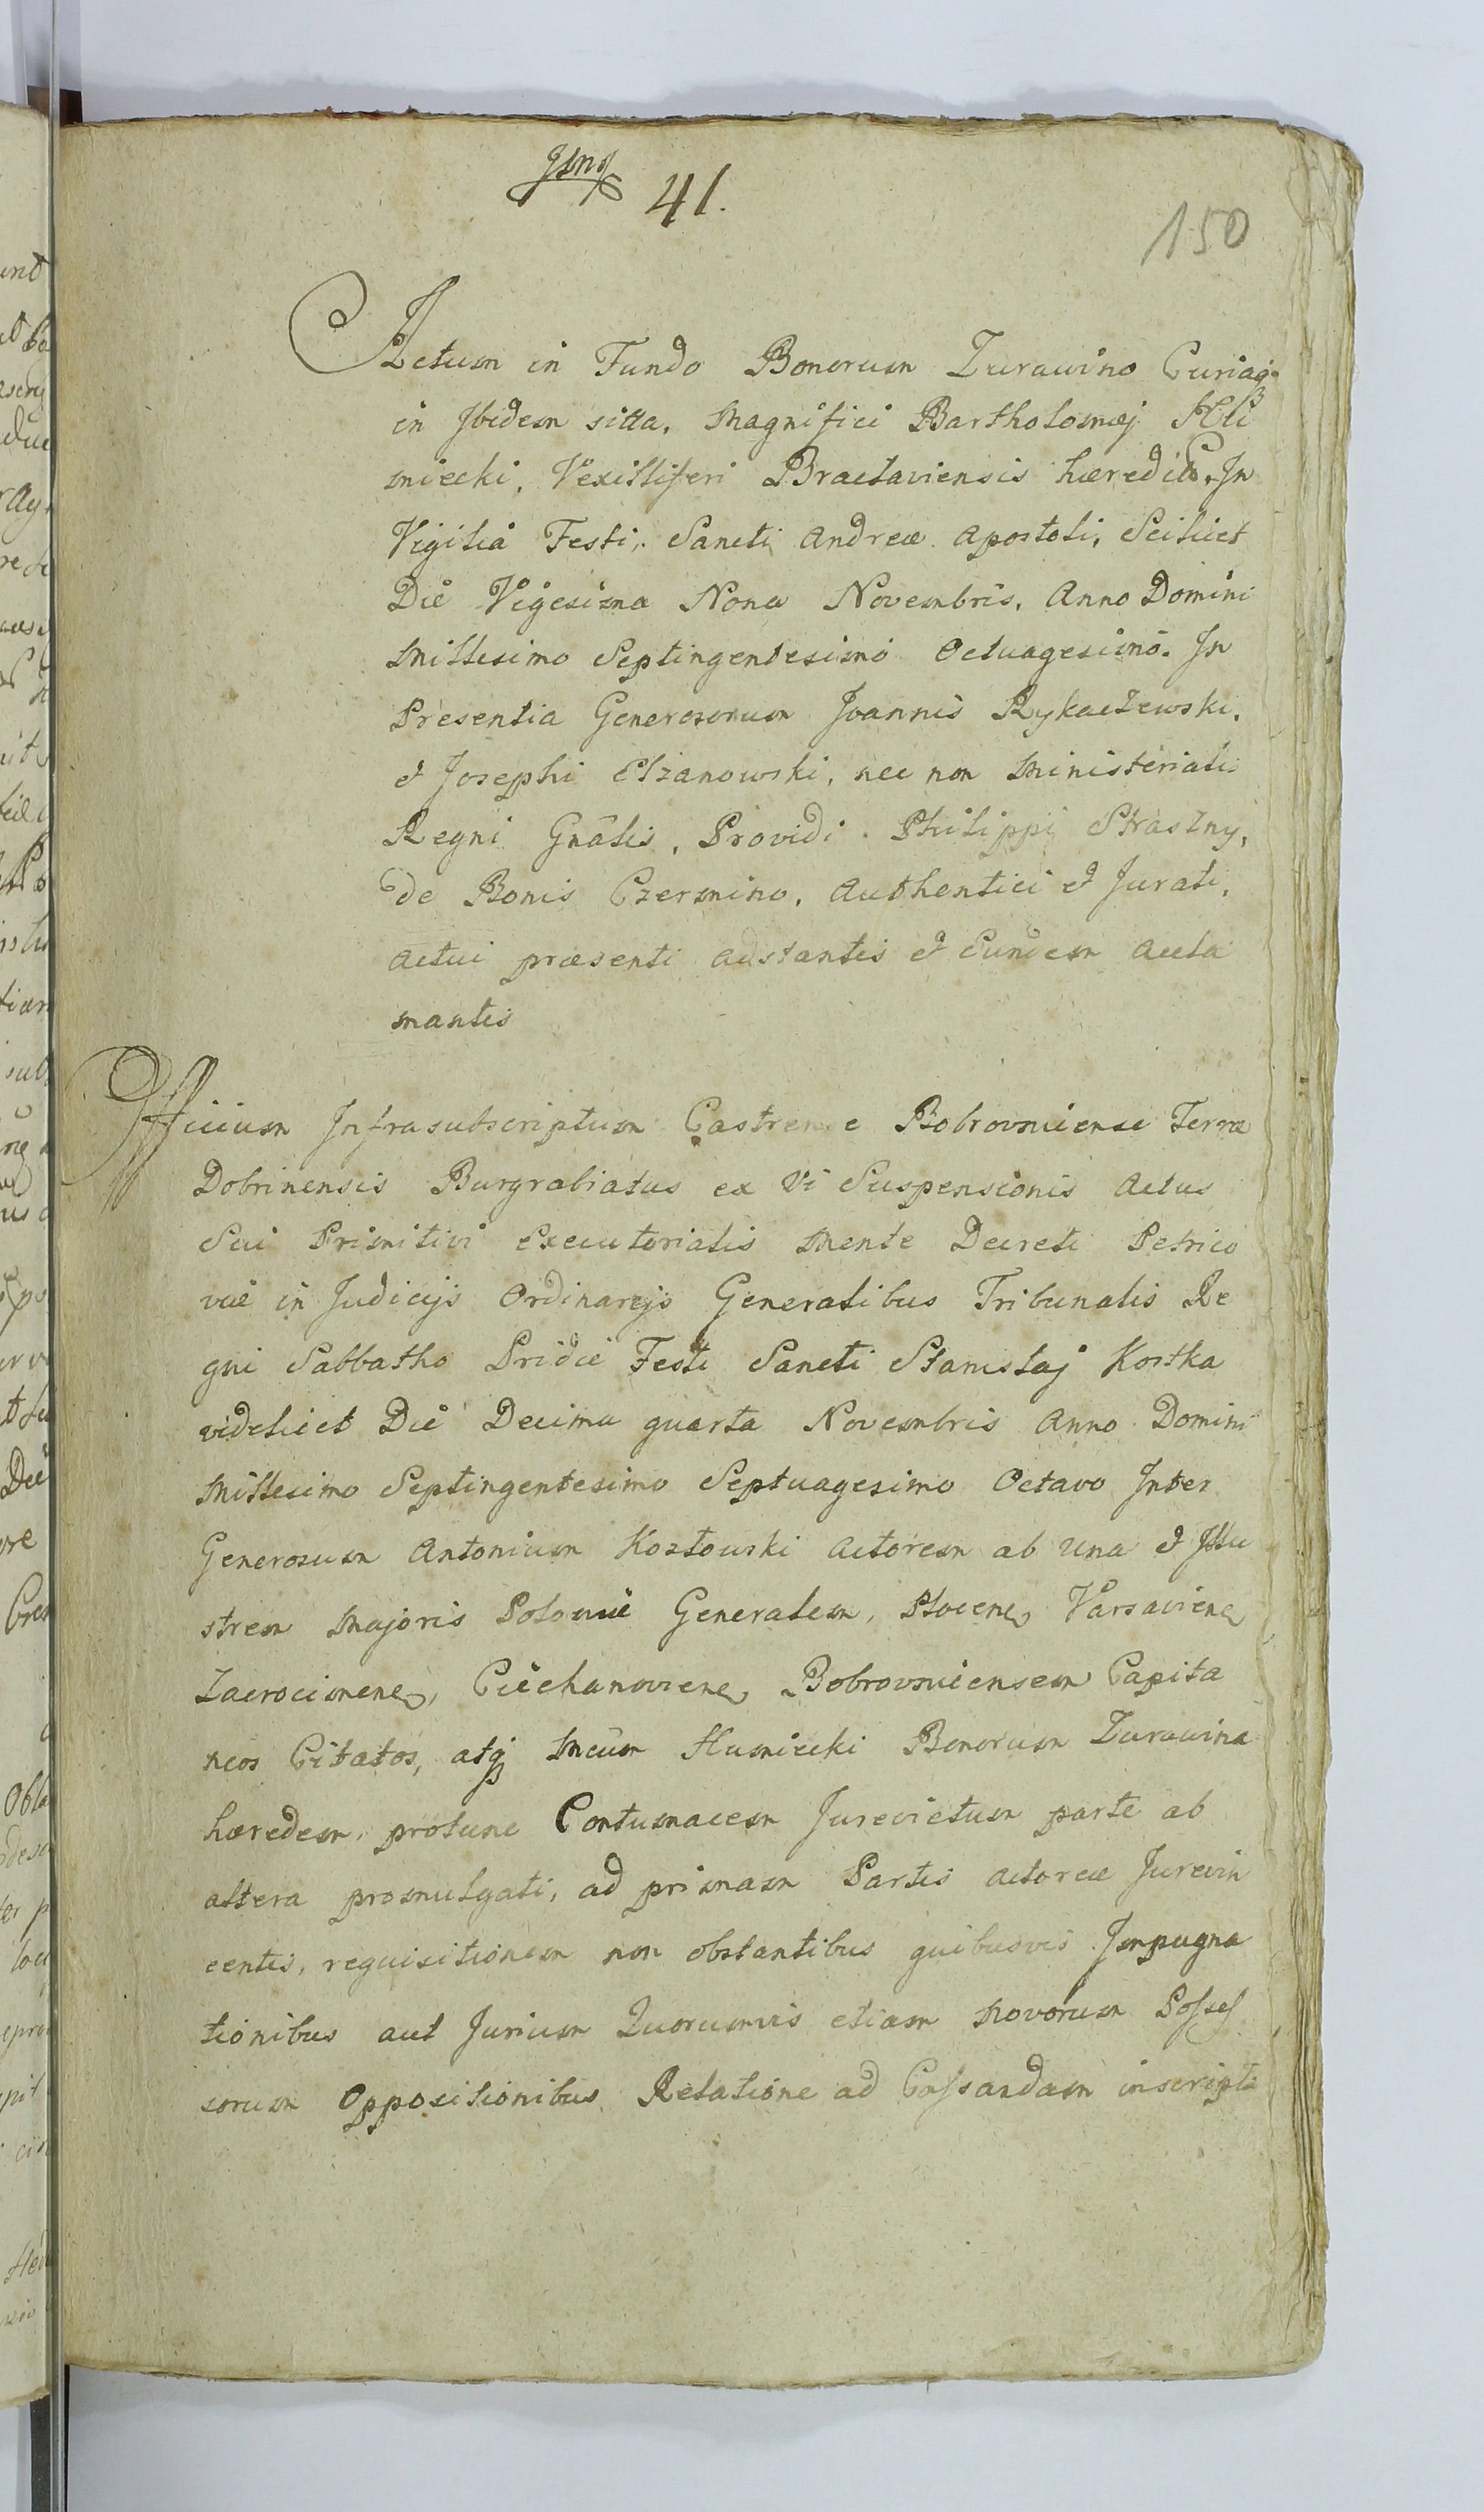 41.
150
Actum in Fundo Bonorum Zurawino Curiaq3
in Jbidem sitta, Magnifici Bartholomæj Hu
miecki, Vexilliferi Braclaviensis hæredit. Jn
Vigilia Festi, Sancti Andreæ Apostoli, Scilicet
Die Vigesima Nona Novembris, Anno Domini
Millesimo Septingentesimo Octuagesimo. Jn
Presentia Generosorum Joannis Rykaczewski,
et Josephi Elzanowski, nec non Ministerialis
Regni Gnãlis, Providi Philippi Strászny,
de Bonis Czermino, Authentici et Jurati,
Actui præsenti adstantis et Eundem accla
mantis
Officium Jnfrasubscriptum Castrense Bobrovniense Terræ
Dobrinensis Burgrabiatus ex Vi Suspensionis Actus
Sui Primitivi Executorialis Mente Decreti Petrico
viæ in Judicijs Ordinarijs Generalibus Tribunalis Re
gni Sabbatho Pridie Festi Sancti Stanislaj Kostka
videlicet Die Decima quarta Novembris Anno Domini
Millesimo Septingentesimo Septuagesimo Octavo Jnter
Generosum Antonium Kozłowski Actorem ab una et Jllu
strem Majoris Poloniæ Generalem, Plocen, Varsavien
Zacrocimen, Ciechanovien, Bobrovniensem Capita
neos Citatos, atq3 Mcum Humiecki Bonorum Zurawina
hæredem, protunc Contumacem Jurevictum parte ab
altera promulgati, ad primam Partis Actoreæ Jurevin
centis, requisitionem non obstantibus quibusvis Jmpugna
tionibus aut Jurium Quorumvis etiam Novorum Posses
sorum Oppositionibus Relatione ad Cassandam inscripta